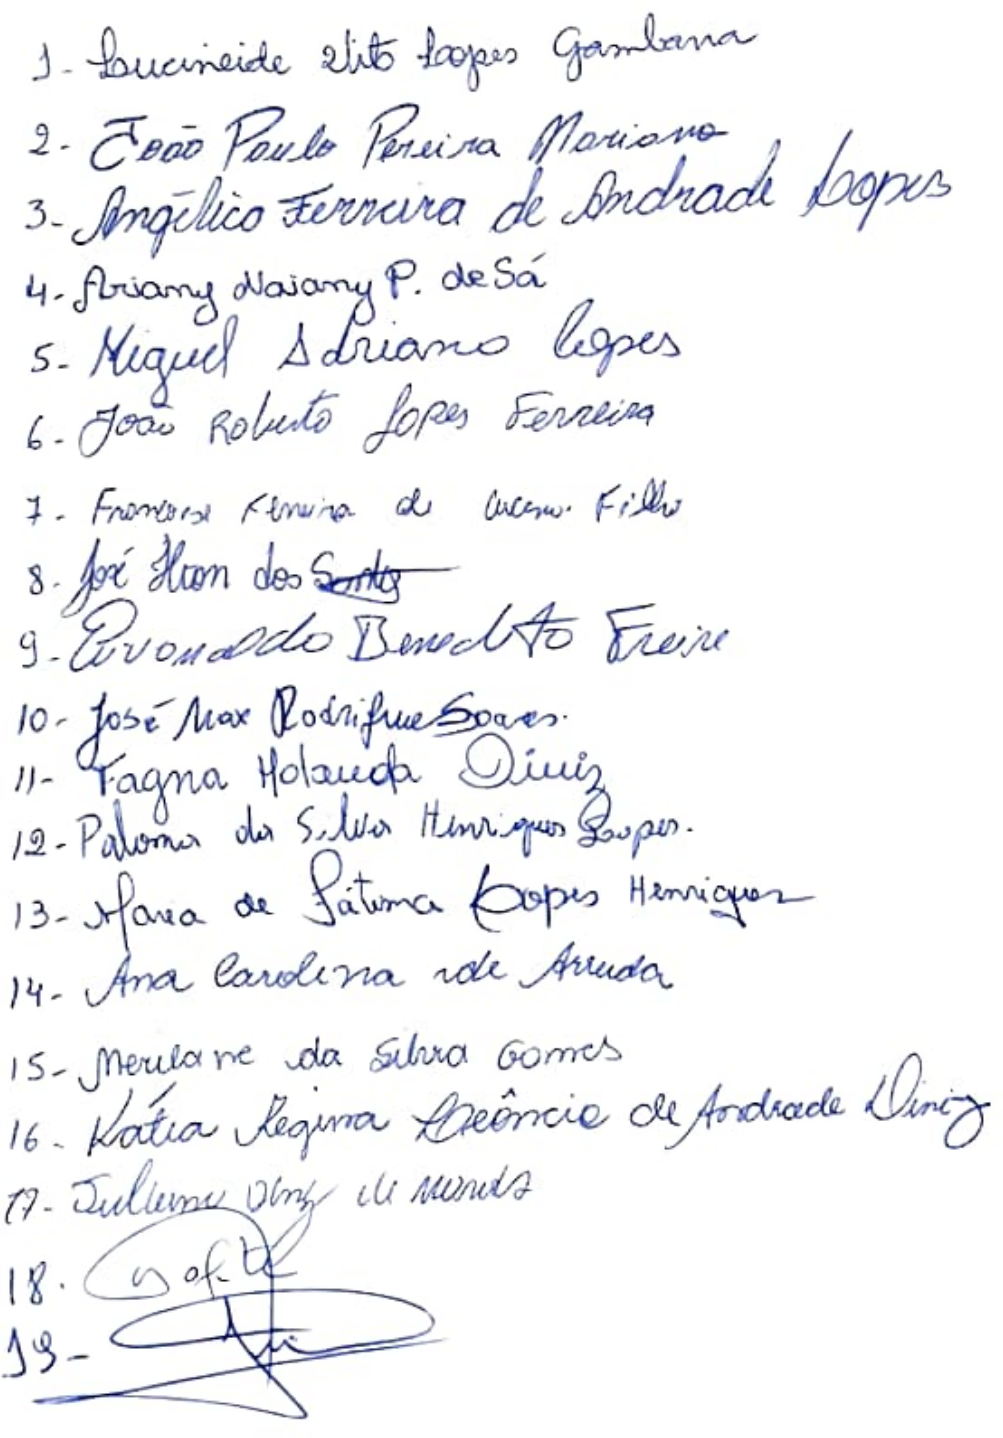 1- Lucineide Vito Lopes Gambarra
2- João Paulo Pereira Mariano
3- Angélica Ferreira de Andrade Lopes
4- Ariany Naiany P. de Sá
5- Miguel Adriano Lopes
6- João Roberto Lopes Ferreira
7- Ferreira de Lucena Filho
8- José Hian dos Santos
9- Benedito Freire
10- José Max Rodrigues Soares.
11- Fagna Holanda Diniz
12- Paloma da Silva Henriques Lopes.
13- Maria de Fátima Lopes Henriques
14- Ana Carolina de Arruda
15- Merilane da Silva Gomes
16- Kátia Regina Leôncio de Andrade Diniz
17- Juliana Diniz de
18-
19-